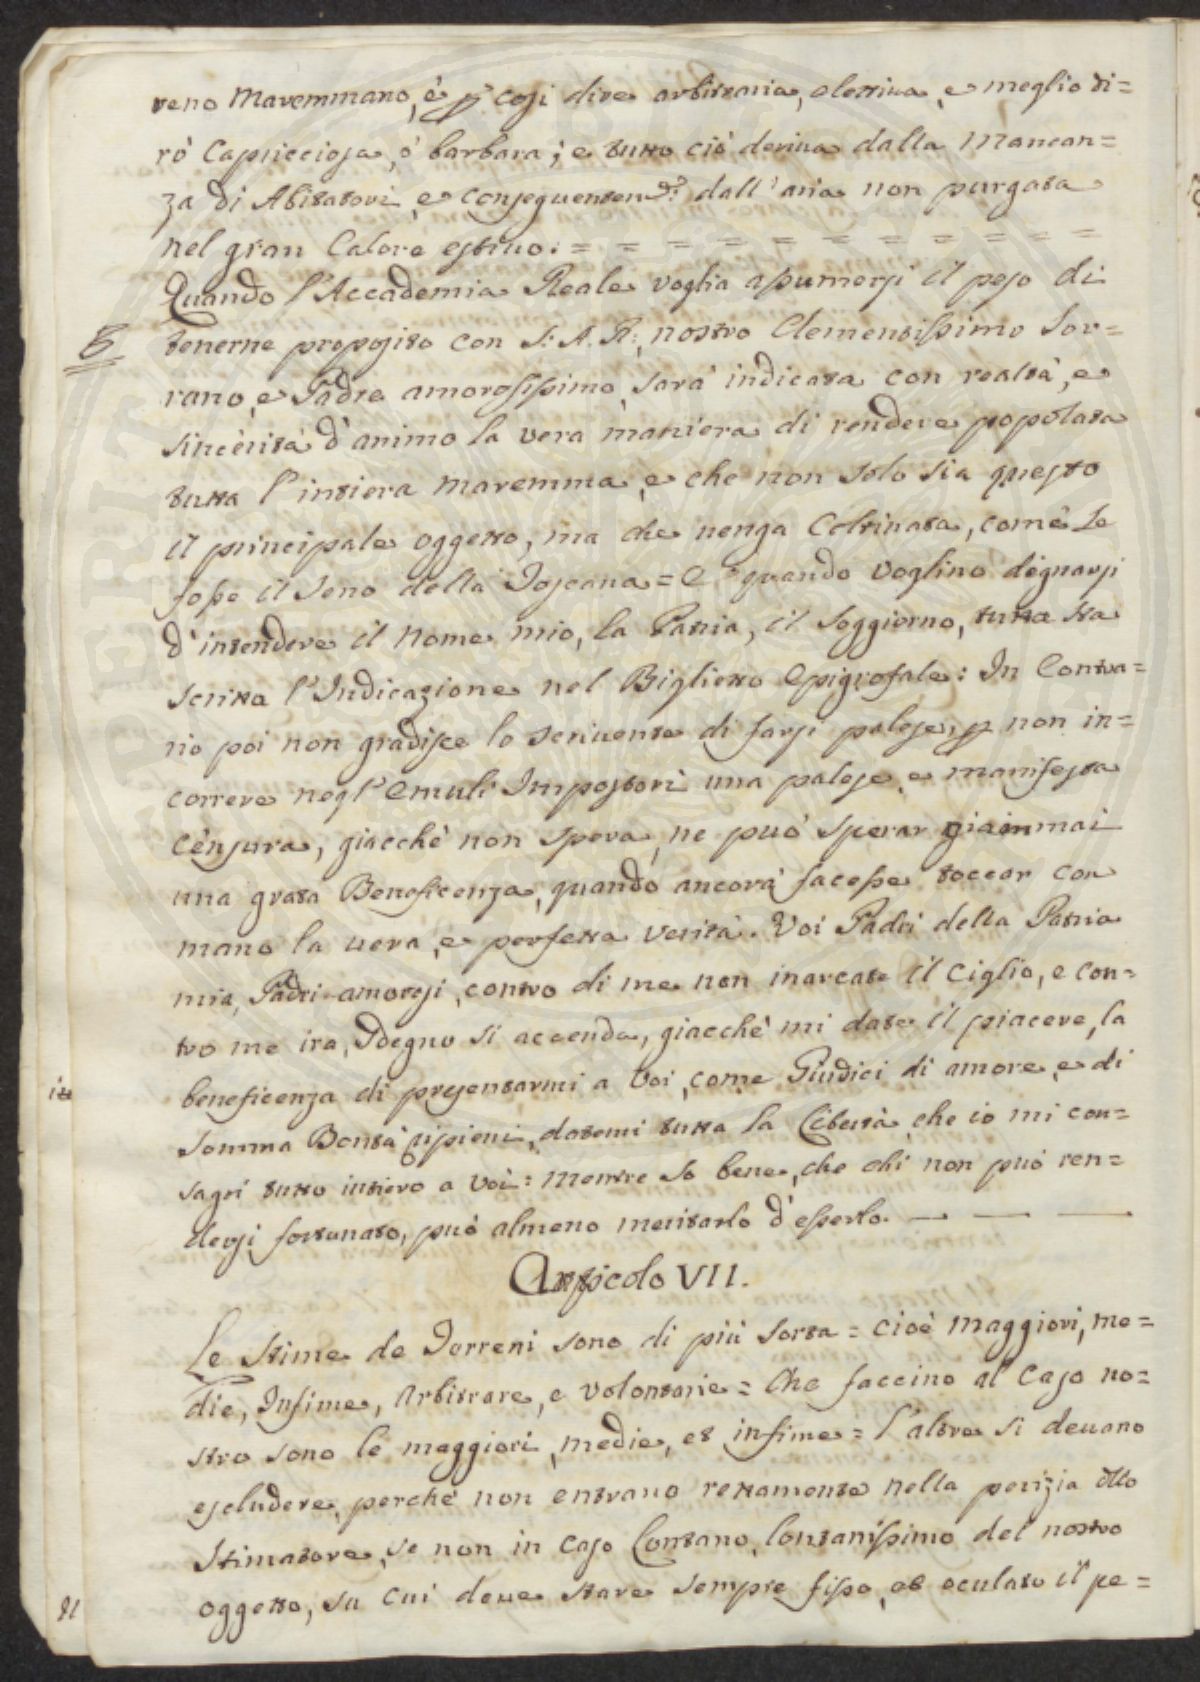 reno Maremmano, è p cosi dire arbitraria, elettiva, e meglio di=
rò Capricciosa, ò barbara; e tutto ciò deriua dalla Mancan=
za di Abitatori, e conseguentem.e dall'aria non purgata
nel gran Calore estiuo. = = = = = = = = = = =
Quando l'Accademia Reale voglia assumersi il peso di
tenerne proposito con S: A. R:, nostro Clementissimo Sov=
rano, e Padre amorosissimo, sarà indicata con realtà, e
sincerità d'animo la vera maniera di rendere popolata
tutta l'intiera maremma, e che non solo sia questo
il principale oggetto, ma che uenga Coltiuata, come se
fosse il Seno della Toscana = E quando voglino degnarsi
d'intendere il Nome mio, la Patria, il Soggiorno, tutta sta
scritta l'Indicazione nel Biglietto Epigrafale: In Contra=
rio poi non gradisce lo scriuente di farsi palese, p non in=
correre negl'Emuli Impostori una palese, e manifesta
censura, giacchè non spera, ne può sperar giammai
una grata Beneficenza, quando ancora facesse toccar con
mano la uera, e perfetta verità. Voi Padri della Patria
mia, Padri amorosi, contro di me non inarcate il Ciglio, e con=
tro me ira, Sdegno si accenda, giacchè mi date il piacere, la
beneficenza di presentarmi a Voi, come Giudici di amore, e di
Somma Bontà ripieni, datemi tutta la Libertà, che io mi con=
sagri tutto intiero a Voi: Mentre so bene, che chi non può ren=
dersi fortunato, può almeno meritarlo d'esserlo. — — —
Articolo VII.
Le Stime de Terreni sono di più Sorta = cioè Maggiori, me=
die, Infime, Arbitrare, e Volontarie = Che faccino al Caso no=
stro sono le maggiori, medie, et infime = l'altre si deuano
escludere, perchè non entrano rettamente nella perizia dello
Stimatore, se non in caso Lontano, lontanissimo del nostro
oggetto, su cui deue stare sempre fisso, ed oculato il pe=